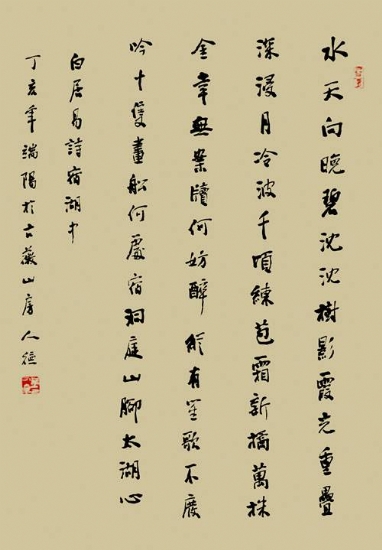 水天向晚碧沈沈樹影霞光重疊
深浸月冷波千頃練苞霜新橘萬株
金幸無案牘何妨醉縱有笙歌不廢
吟十隻畫船何處宿洞庭山腳太湖心
白居易詩宿湖中
丁亥年端陽於古山房人德